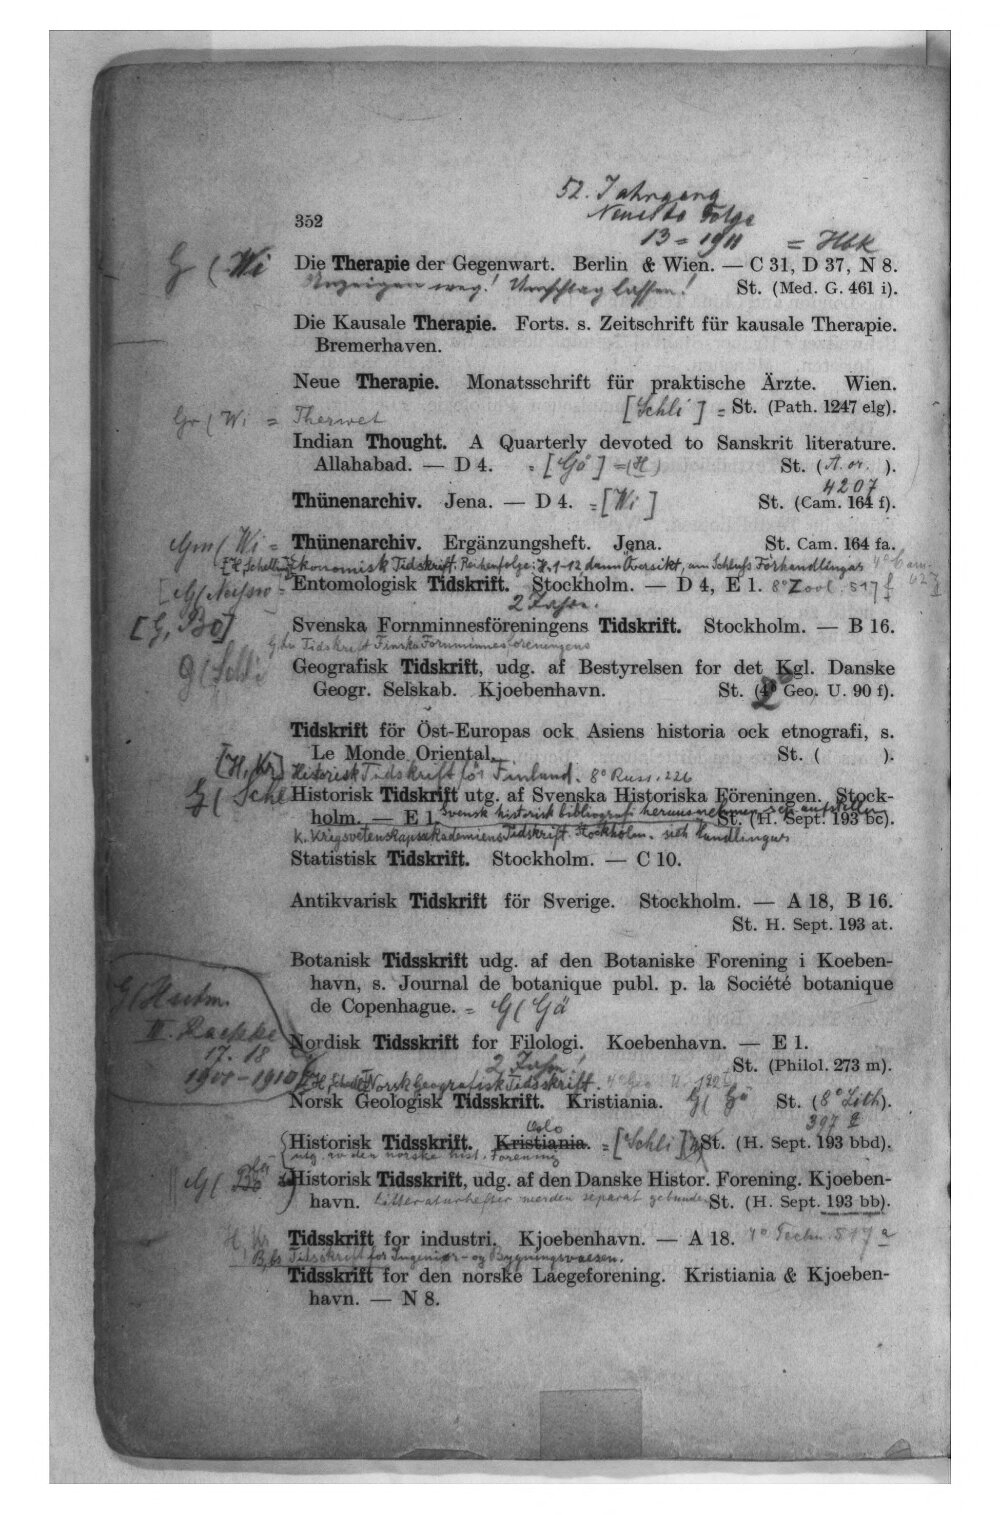 52. Jahrgang
Neueste Folge
352
13 = 1911 = Hbk
G ( Wi Die Therapie der Gegenwart. Berlin & Wien. — C 31, D 37, N 8.
Anzeigen weg! Umschlag lassen! St. (Med. G. 461 i).
Die Kausale Therapie. Forts. s. Zeitschrift für kausale Therapie.
Bremerhaven.
Neue Therapie. Monatsschrift für praktische Ärzte. Wien.
[Schli] = St. (Path. 1247 elg).
Gr ( Wi =
Indian Thought. A Quarterly devoted to Sanskrit literature.
Allahabad. — D 4. = [Gö] = (H) St. (A. or. ).
4207
Thünenarchiv. Jena. — D 4. = [Wi] St. (Cam. 164 f).
( Wi = Thünenarchiv. Ergänzungsheft. Jena. St. Cam. 164 fa.
Ekonomisk Tidskrift. Reihenfolge: H. 1-12 dann Översikt, am Schluß Förhandlingar
Entomologisk Tidskrift. Stockholm. — D 4, E 1. 8° Zool. 517 f
[G, Bo] Svenska Fornminnesföreningens Tidskrift. Stockholm. — B 16.
Tidskrift Finska Fornminnesföreningens
G ( Schli Geografisk Tidskrift, udg. af Bestyrelsen for det Kgl. Danske
Geogr. Selskab. Kjoebenhavn. St. (4° Geo. U. 90 f).
Tidskrift för Öst-Europas ock Asiens historia ock etnografi, s.
Le Monde Oriental. St. ( ).
[H, Kr] Historisk Tidskrift för Finland. 8° Russ. 226
G ( Schl Historisk Tidskrift utg. af Svenska Historiska Föreningen. Stock-
holm. — E 1. Svensk historisk bibliografi herausnehmen sep aufstellen St. (H. Sept. 193 bc).
K. Krigsvetenskapsakademiens Tidskrift. Stockholm. sieh handlingar
Statistisk Tidskrift. Stockholm. — C 10.
Antikvarisk Tidskrift för Sverige. Stockholm. — A 18, B 16.
St. H. Sept. 193 at.
Botanisk Tidsskrift udg. af den Botaniske Forening i Koeben-
havn, s. Journal de botanique publ. p. la Société botanique
de Copenhague. = G ( Gö
17. 18
1900-1910
Nordisk Tidsskrift for Filologi. Koebenhavn. — E 1.
St. (Philol. 273 m).
Norsk Geografisk Tidsskrift.
Norsk Geologisk Tidsskrift. Kristiania. G ( Gö St. (8° Lith).
397
Oslo
Historisk Tidsskrift. Kristiania. = [Schli] St. (H. Sept. 193 bbd).
utg. av den norske hist. Forening
G ( Bo Historisk Tidsskrift, udg. af den Danske Histor. Forening. Kjoeben-
havn. Litteraturhefter werden separat gebunden St. (H. Sept. 193 bb).
H, Kr Tidsskrift for industri. Kjoebenhavn. — A 18. 4° Techn. 517 a
Tidsskrift for Ingeniør- og Bygningsvaesen.
Tidsskrift for den norske Laegeforening. Kristiania & Kjoeben-
havn. — N 8.